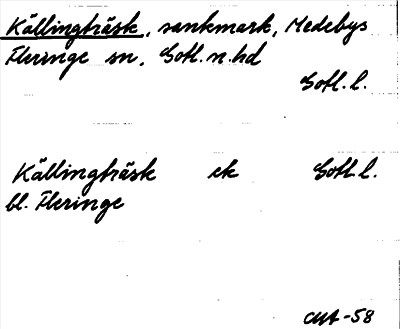 Källingträsk, sankmark, Medebys
Fleringe sn, Gotl. n. hd
Gotl. l.
Källingträsk ek Gotl. l.
bl. Fleringe
CMA-58